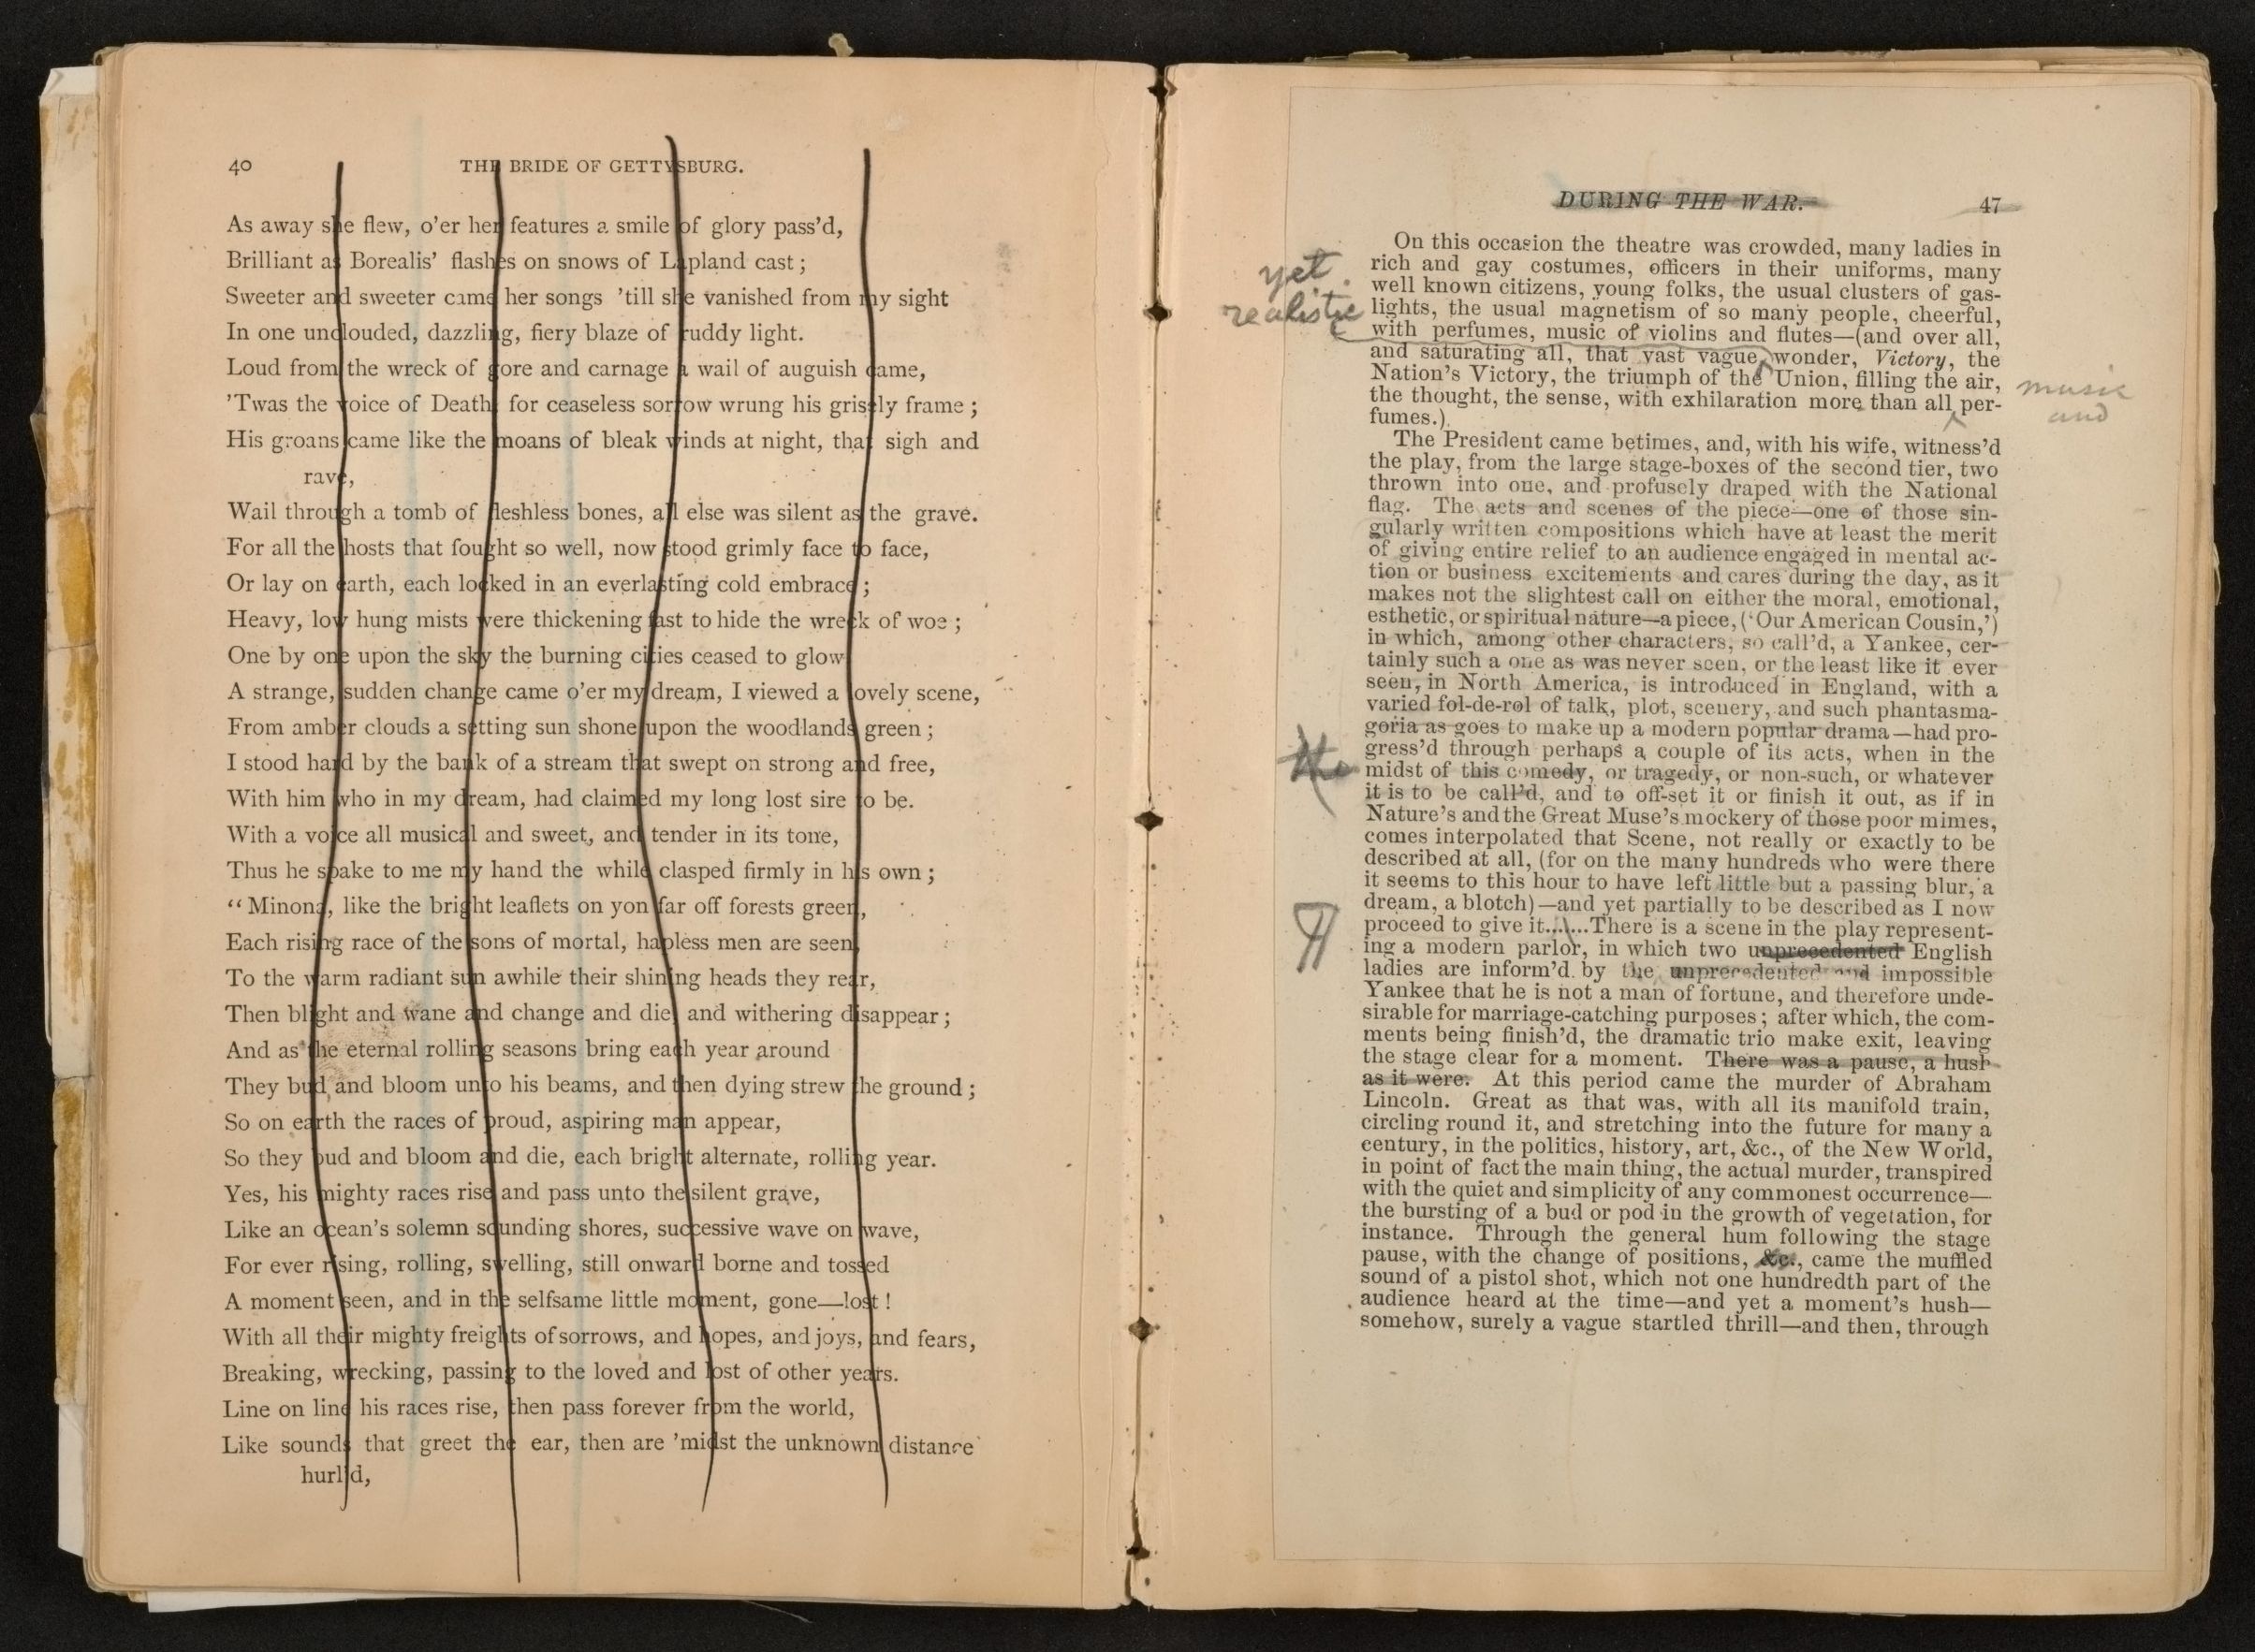 40 THE BRIDE OF GETTYSBURG.
As away she flew, o'er her features a smile of glory pass'd,
Brilliant as Borealis' flashes on snows of Lapland cast ;
Sweeter and sweeter came her songs 'till she vanished from my sight
In one unclouded, dazzling, fiery blaze of ruddy light.
Loud from the wreck of gore and carnage a wail of auguish came,
'Twas the voice of Death, for ceaseless sorrow wrung his grissly frame ;
His groans came like the moans of bleak winds at night, that sigh and
rave,
Wail through a tomb of fleshless bones, all else was silent as the grave.
For all the hosts that fought so well, now stood grimly face to face,
Or lay on earth, each locked in an everlasting cold embrace ;
Heavy, low hung mists were thickening fast to hide the wreck of woe ;
One by one upon the sky the burning cities ceased to glow
A strange, sudden change came o'er my dream, I viewed a lovely scene,
From amber clouds a setting sun shone upon the woodlands green ;
I stood hard by the bank of a stream that swept on strong and free,
With him who in my dream, had claimed my long lost sire to be.
With a voice all musical and sweet, and tender in its tone,
Thus he spake to me my hand the while clasped firmly in his own ;
“ Minona, like the bright leaflets on yon far off forests green,
Each rising race of the sons of mortal, hapless men are seen,
To the warm radiant sun awhile their shining heads they rear,
Then blight and wane and change and die, and withering disappear ;
And as the eternal rolling seasons bring each year around
They bud and bloom unto his beams, and then dying strew the ground ;
So on earth the races of proud, aspiring man appear,
So they bud and bloom and die, each bright alternate, rolling year.
Yes, his mighty races rise and pass unto the silent grave,
Like an ocean's solemn sounding shores, successive wave on wave,
For ever rising, rolling, swelling, still onward borne and tossed
A moment seen, and in the selfsame little moment, gone—lost !
With all their mighty freights of sorrows, and hopes, and joys, and fears,
Breaking, wrecking, passing to the loved and lost of other years.
Line on line his races rise, then pass forever from the world,
Like sounds that greet the ear, then are 'midst the unknown distance
hurl'd,
DURING THE WAR. 47
On this occasion the theatre was crowded, many ladies in
rich and gay costumes, officers in their uniforms, many
well known citizens, young folks, the usual clusters of gas-
lights, the usual magnetism of so many people, cheerful,
with perfumes, music of violins and flutes—(and over all,
and saturating all, that vast vague wonder, Victory, the
yet
realistic
Nation's Victory, the triumph of the Union, filling the air,
the thought, the sense, with exhilaration more than all per-
music
and
fumes.)
The President came betimes, and, with his wife, witness'd
the play, from the large stage-boxes of the second tier, two
thrown into one, and profusely draped with the National
flag. The acts and scenes of the piece—one of those sin-
gularly written compositions which have at least the merit
of giving entire relief to an audience engaged in mental ac-
tion or business excitements and cares during the day, as it
makes not the slightest call on either the moral, emotional,
esthetic, or spiritual nature—a piece, ('Our American Cousin,')
in which, among other characters, so call'd, a Yankee, cer-
tainly such a one as was never seen, or the least like it ever
seen, in North America, is introduced in England, with a
varied fol-de-rol of talk, plot, scenery, and such phantasma-
goria as goes to make up a modern popular drama—had pro-
gress'd through perhaps a couple of its acts, when in the
the
midst of this comedy, or tragedy, or non-such, or whatever
it is to be call'd, and to off-set it or finish it out, as if in
Nature's and the Great Muse's mockery of those poor mimes,
comes interpolated that Scene, not really or exactly to be
described at all, (for on the many hundreds who were there
it seems to this hour to have left little but a passing blur, a
dream, a blotch)—and yet partially to be described as I now
¶ proceed to give it.......There is a scene in the play represent-
ing a modern parlor, in which two unprecedented English
ladies are inform'd by the unprecedented and impossible
Yankee that he is not a man of fortune, and therefore unde-
sirable for marriage-catching purposes ; after which, the com-
ments being finish'd, the dramatic trio make exit, leaving
the stage clear for a moment. There was a pause, a hush
as it were. At this period came the murder of Abraham
Lincoln. Great as that was, with all its manifold train,
circling round it, and stretching into the future for many a
century, in the politics, history, art, &c., of the New World,
in point of fact the main thing, the actual murder, transpired
with the quiet and simplicity of any commonest occurrence—
the bursting of a bud or pod in the growth of vegetation, for
instance. Through the general hum following the stage
pause, with the change of positions, &c., came the muffled
sound of a pistol shot, which not one hundredth part of the
audience heard at the time—and yet a moment's hush—
somehow, surely a vague startled thrill—and then, through